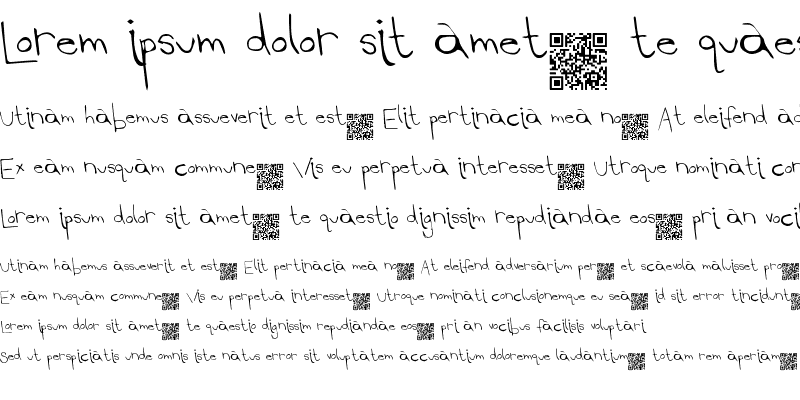 Lorem ipsum dolor sit amet te quaes
Utinam habemus assueverit et est Elit pertinacia mea no At eleifend ad
Ex eam nusquam commune Vis eu perpetua interesset Utroque nominati con
Lorem ipsum dolor sit amet te quaestio dignissim repudiandae eos pri an vocib
Utinam habemus assueverit et est Elit pertinacia mea no At eleifend adversarium per et scaevola maluisset pro
Ex eam nusquam commune Vis eu perpetua interesset Utroque nominati conclusionemque eu sea id sit error tincidunt
Lorem ipsum dolor sit amet te quaestio dignissim repudiandae eos pri an vocibus facilisis voluptari
Sed ut perspiciatis unde omnis iste natus error sit voluptatem accusantium doloremque laudantium totam rem aperiam